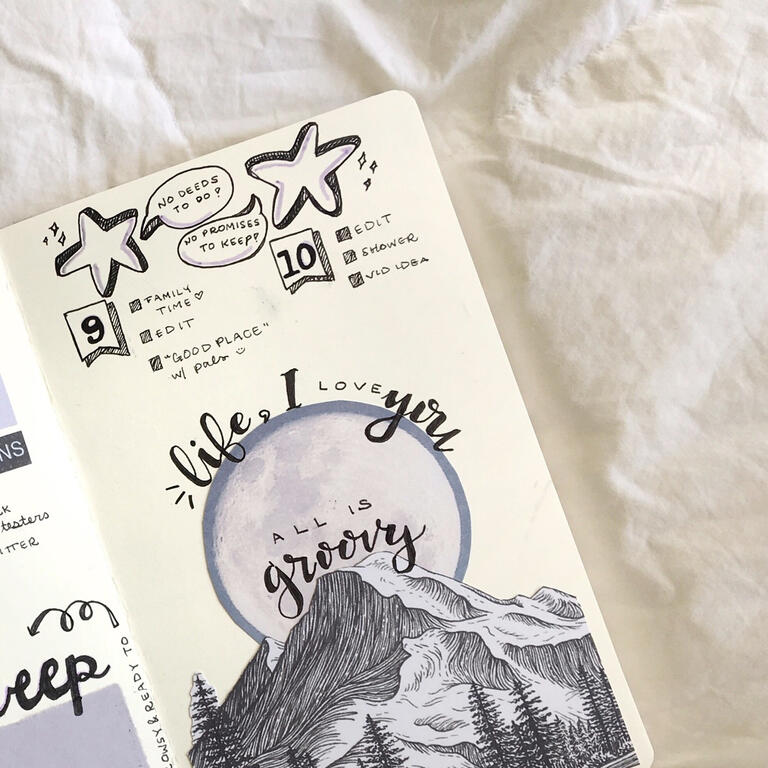 NO DEEDS
TO DO?
NO PROMISES
TO KEEP?
9
FAMILY
TIME♡
EDIT
"GOOD PLACE"
w/ pals
10
EDIT
SHOWER
VID IDEA
life, I LOVE you
ALL IS
groovy
NS
testers